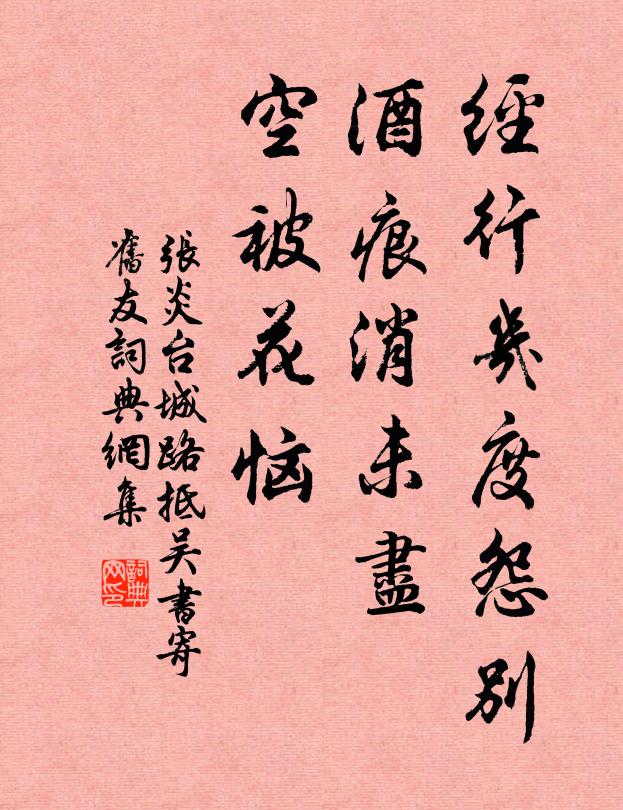 經行幾度怨別
酒痕消未盡
空被花恼
張炎台城路抵吴書寄
舊友詞典網集
詞典
网印